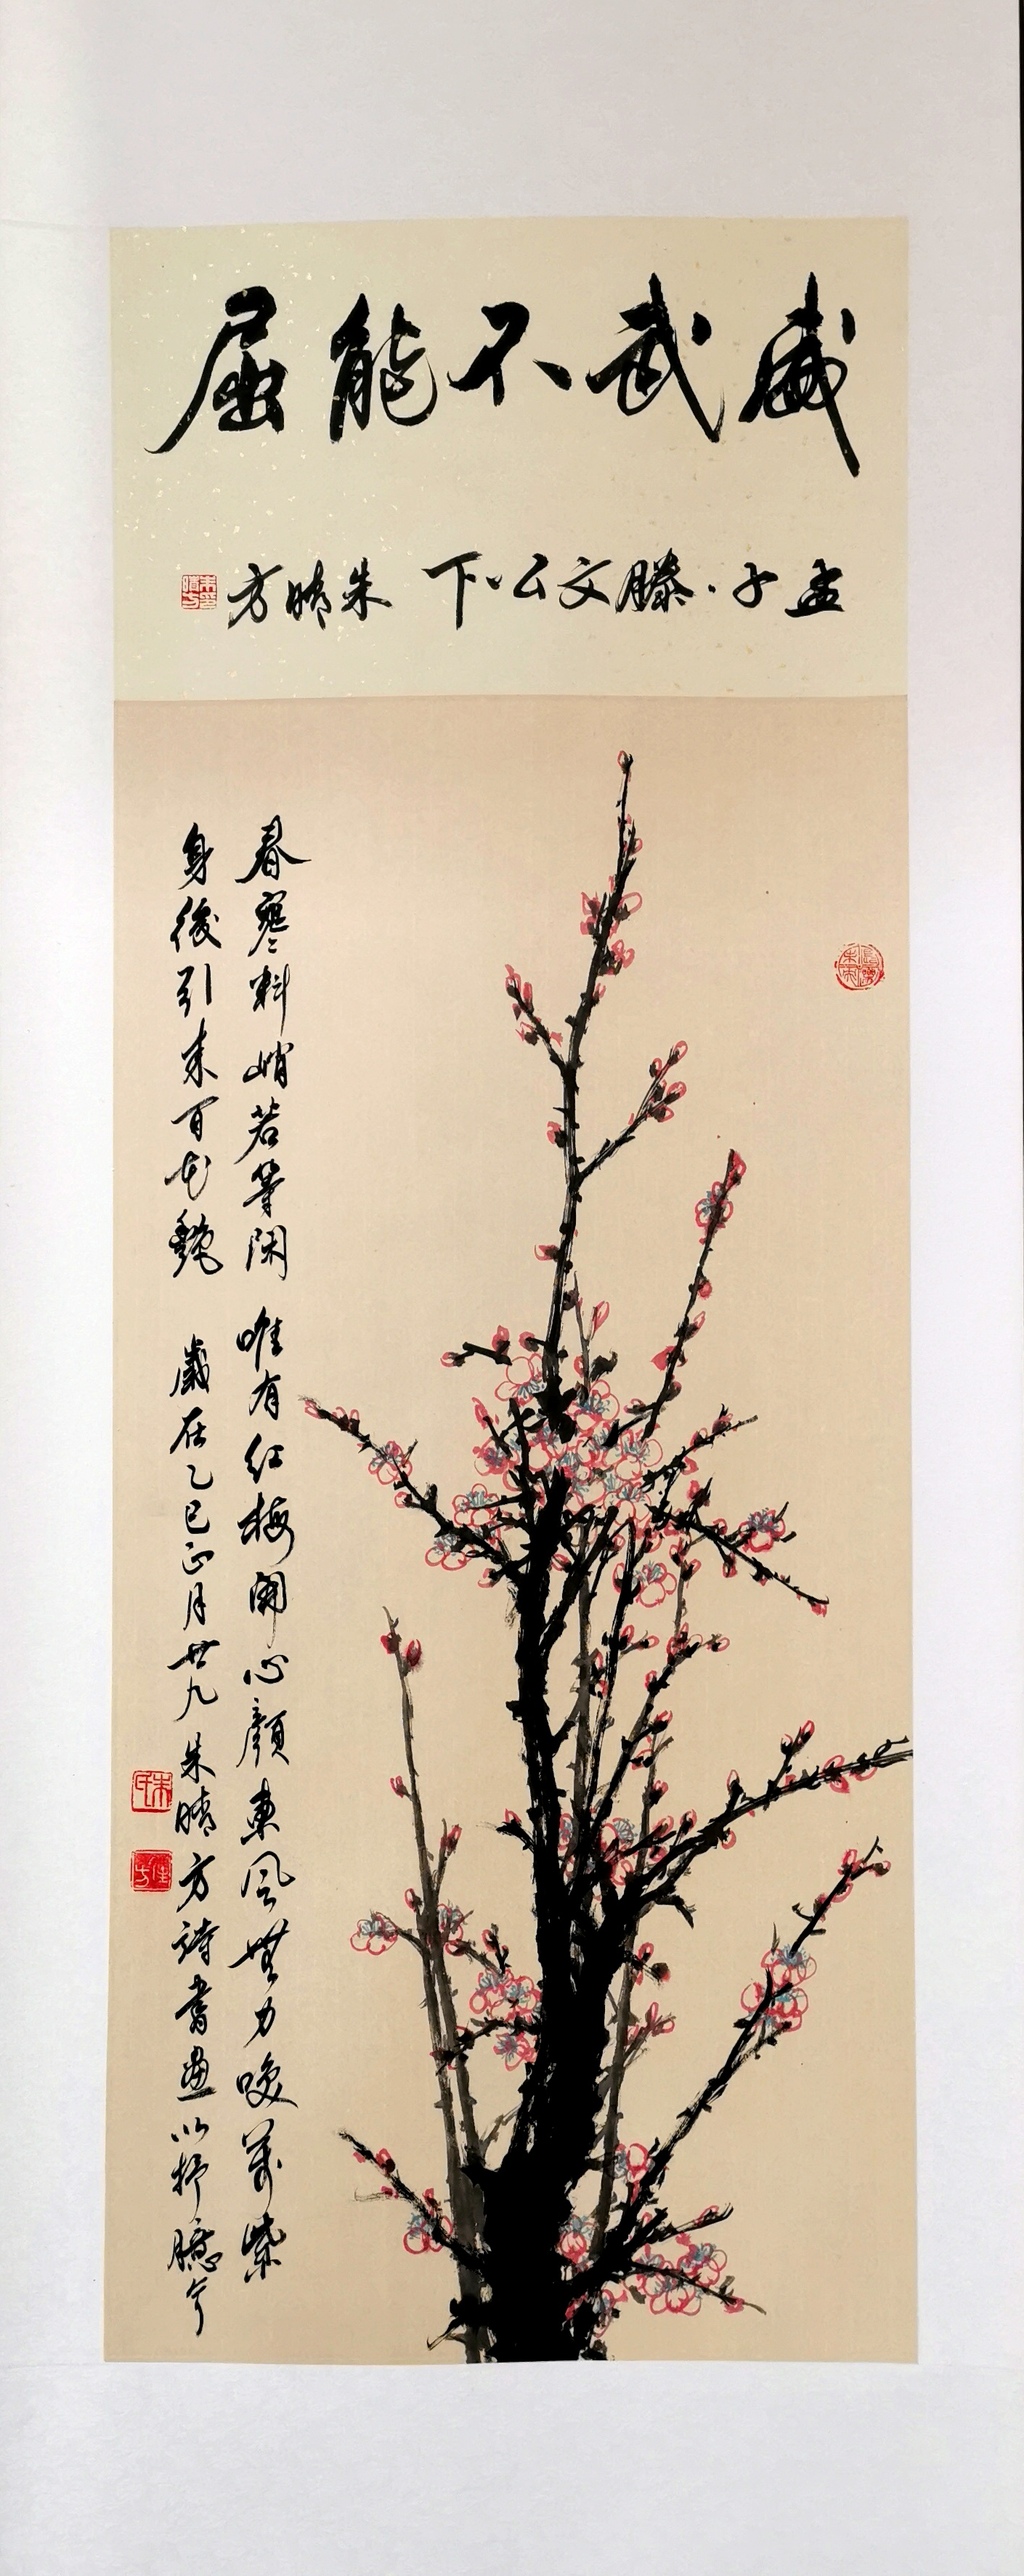 威武不能屈
孟子·滕文公下 朱晴方
春寒料峭若等閑 唯有红梅開心顏東风無力喚萬紫
身後引来百花艷 歲在乙巳正月廿九 朱晴方诗書畫以抒臆兮
朱氏